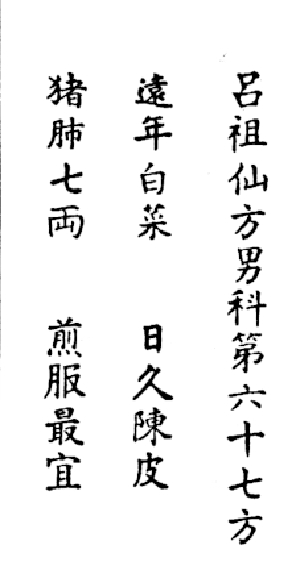 呂祖仙方男科第六十七方
遠年白菜 日久陳皮
猪肺七両 煎服最宜